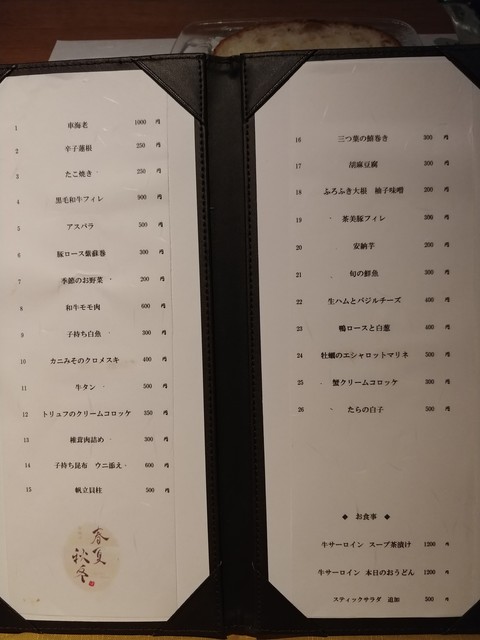 1 車海老 1000 円
2 辛子蓮根 250 円
3 たこ焼き 250 円
4 黒毛和牛フィレ 900 円
5 アスパラ 500 円
6 豚ロース紫蘇巻 300 円
7 季節のお野菜 200 円
8 和牛モモ肉 600 円
9 子持ち白魚 300 円
10 カニみそのクロメスキ 400 円
11 牛タン 500 円
12 トリュフのクリームコロッケ 350 円
13 椎茸肉詰め 300 円
14 子持ち昆布 ウニ添え 600 円
15 帆立貝柱 500 円
春夏
秋冬
16 三つ葉の鮹巻き 300 円
17 胡麻豆腐 300 円
18 ふろふき大根 柚子味噌 200 円
19 茶美豚フィレ 300 円
20 安納芋 200 円
21 旬の鮮魚 300 円
22 生ハムとバジルチーズ 400 円
23 鴨ロースと白葱 400 円
24 牡蠣のエシャロットマリネ 500 円
25 蟹クリームコロッケ 300 円
26 たらの白子 500 円
◆ お食事 ◆
牛サーロイン スープ茶漬け 1200 円
牛サーロイン 本日のおうどん 1200 円
スティックサラダ 追加 500 円